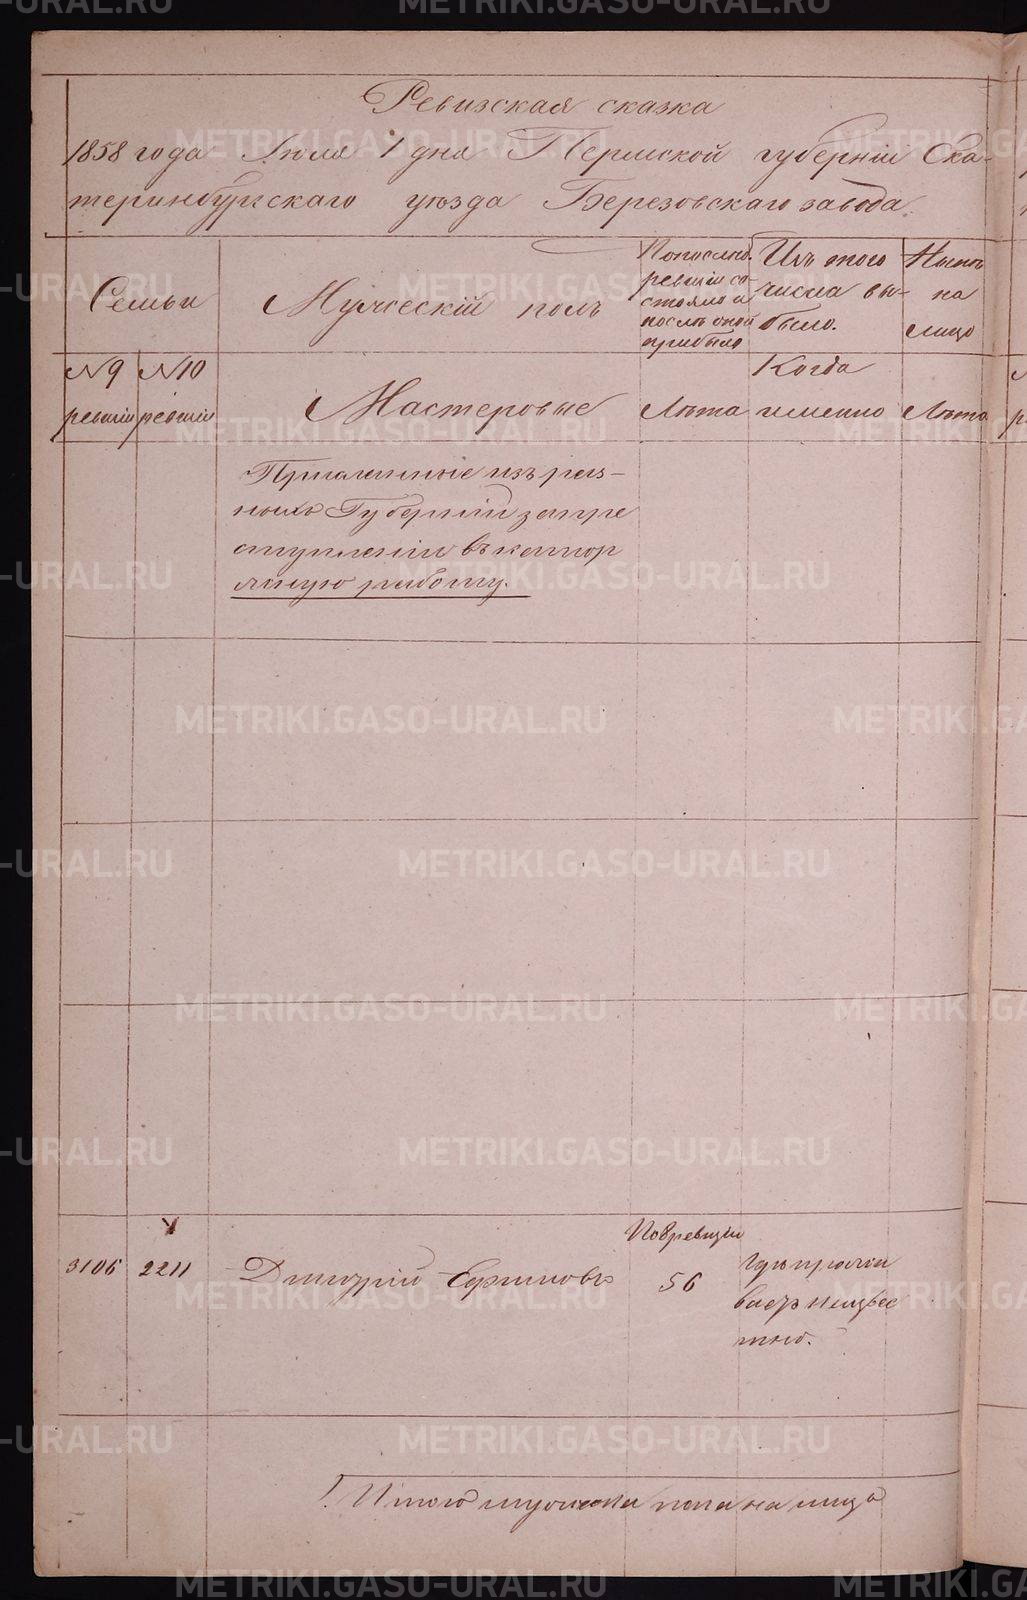 Ревизская сказка
1858 года Июля 1 дня Пермской губерніи Ека-
теринбургскаго уѣзда Березовскаго завода.
Семьи
Мужескій полъ
По послѣд.
ревизіи со-
стояло и
послѣ оной
прибыло
Изъ того
числа вы-
было.
Нынѣ
на
лицо
№9
ревизіи
№10
ревизіи
Мастеровые
Лѣта
Когда
именно
Лѣта
Присланные изъ раз-
ныхъ Губерній за пре
ступленіи въ катор
жную работу.
3106
2211
Дмитрій Ефимовъ
По 8 ревизіи
56
Гдѣ прожи
ваетъ неизвес
тно.
Итого мужеска пола на лицо
METRIKI.GASO-URAL.RU